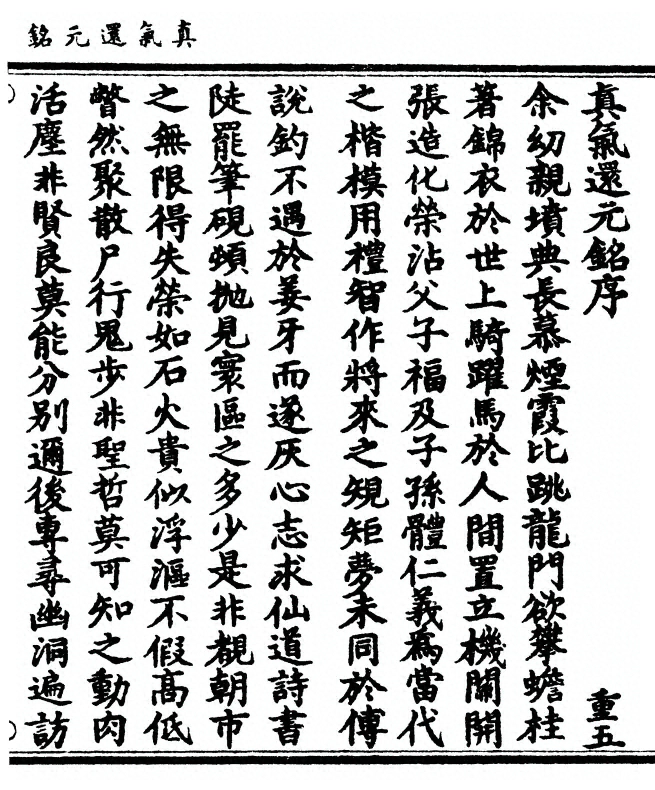 真氣還元銘
真氣還元銘序 重五
余幼親墳典長慕煙霞比跳龍門欲攀蟾桂
著錦衣於世上騎躍馬於人間置立機關開
張造化榮沾父子福及子孫體仁義爲當代
之楷模用禮智作將來之規矩夢未同於傳
說釣不遇於姜牙而遂灰心志求仙道詩書
陡罷筆硯頓抛見寰區之多少是非覩朝市
之無限得失榮如石火貴似浮漚不假高低
瞥然聚散尸行鬼步非聖哲莫可知之動肉
活塵非賢良莫能分別邇後專尋幽洞遍訪